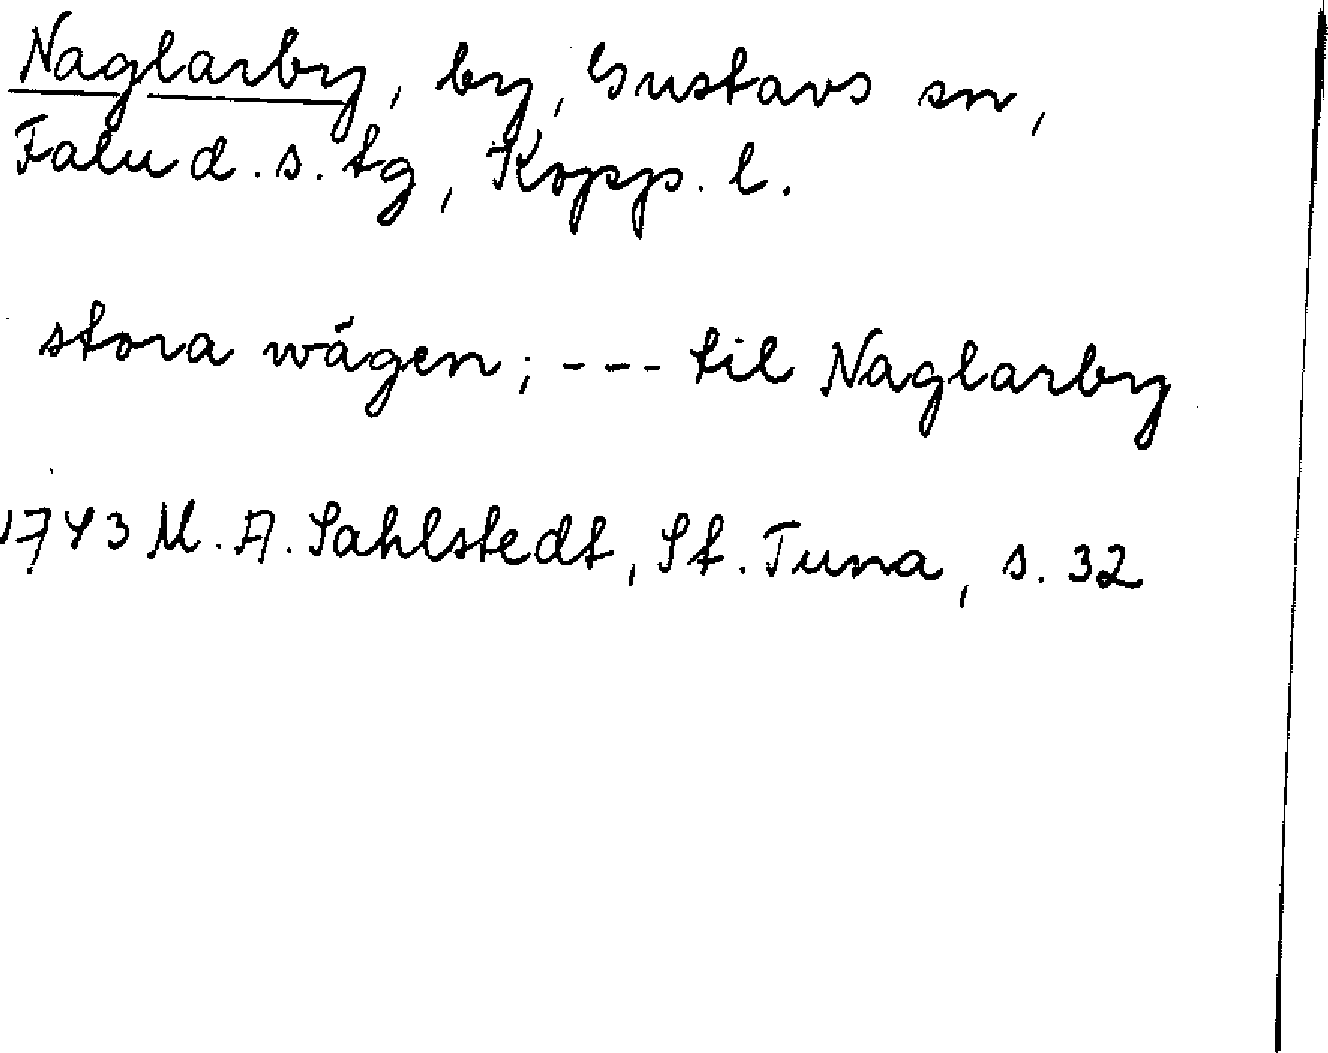 Naglarby, by, Gustavs sn,
Falu d. s. tg, Kopp. l.
stora wägen; --- til Naglarby
1743 M. A. Sahlstedt, St. Tuna, s. 32